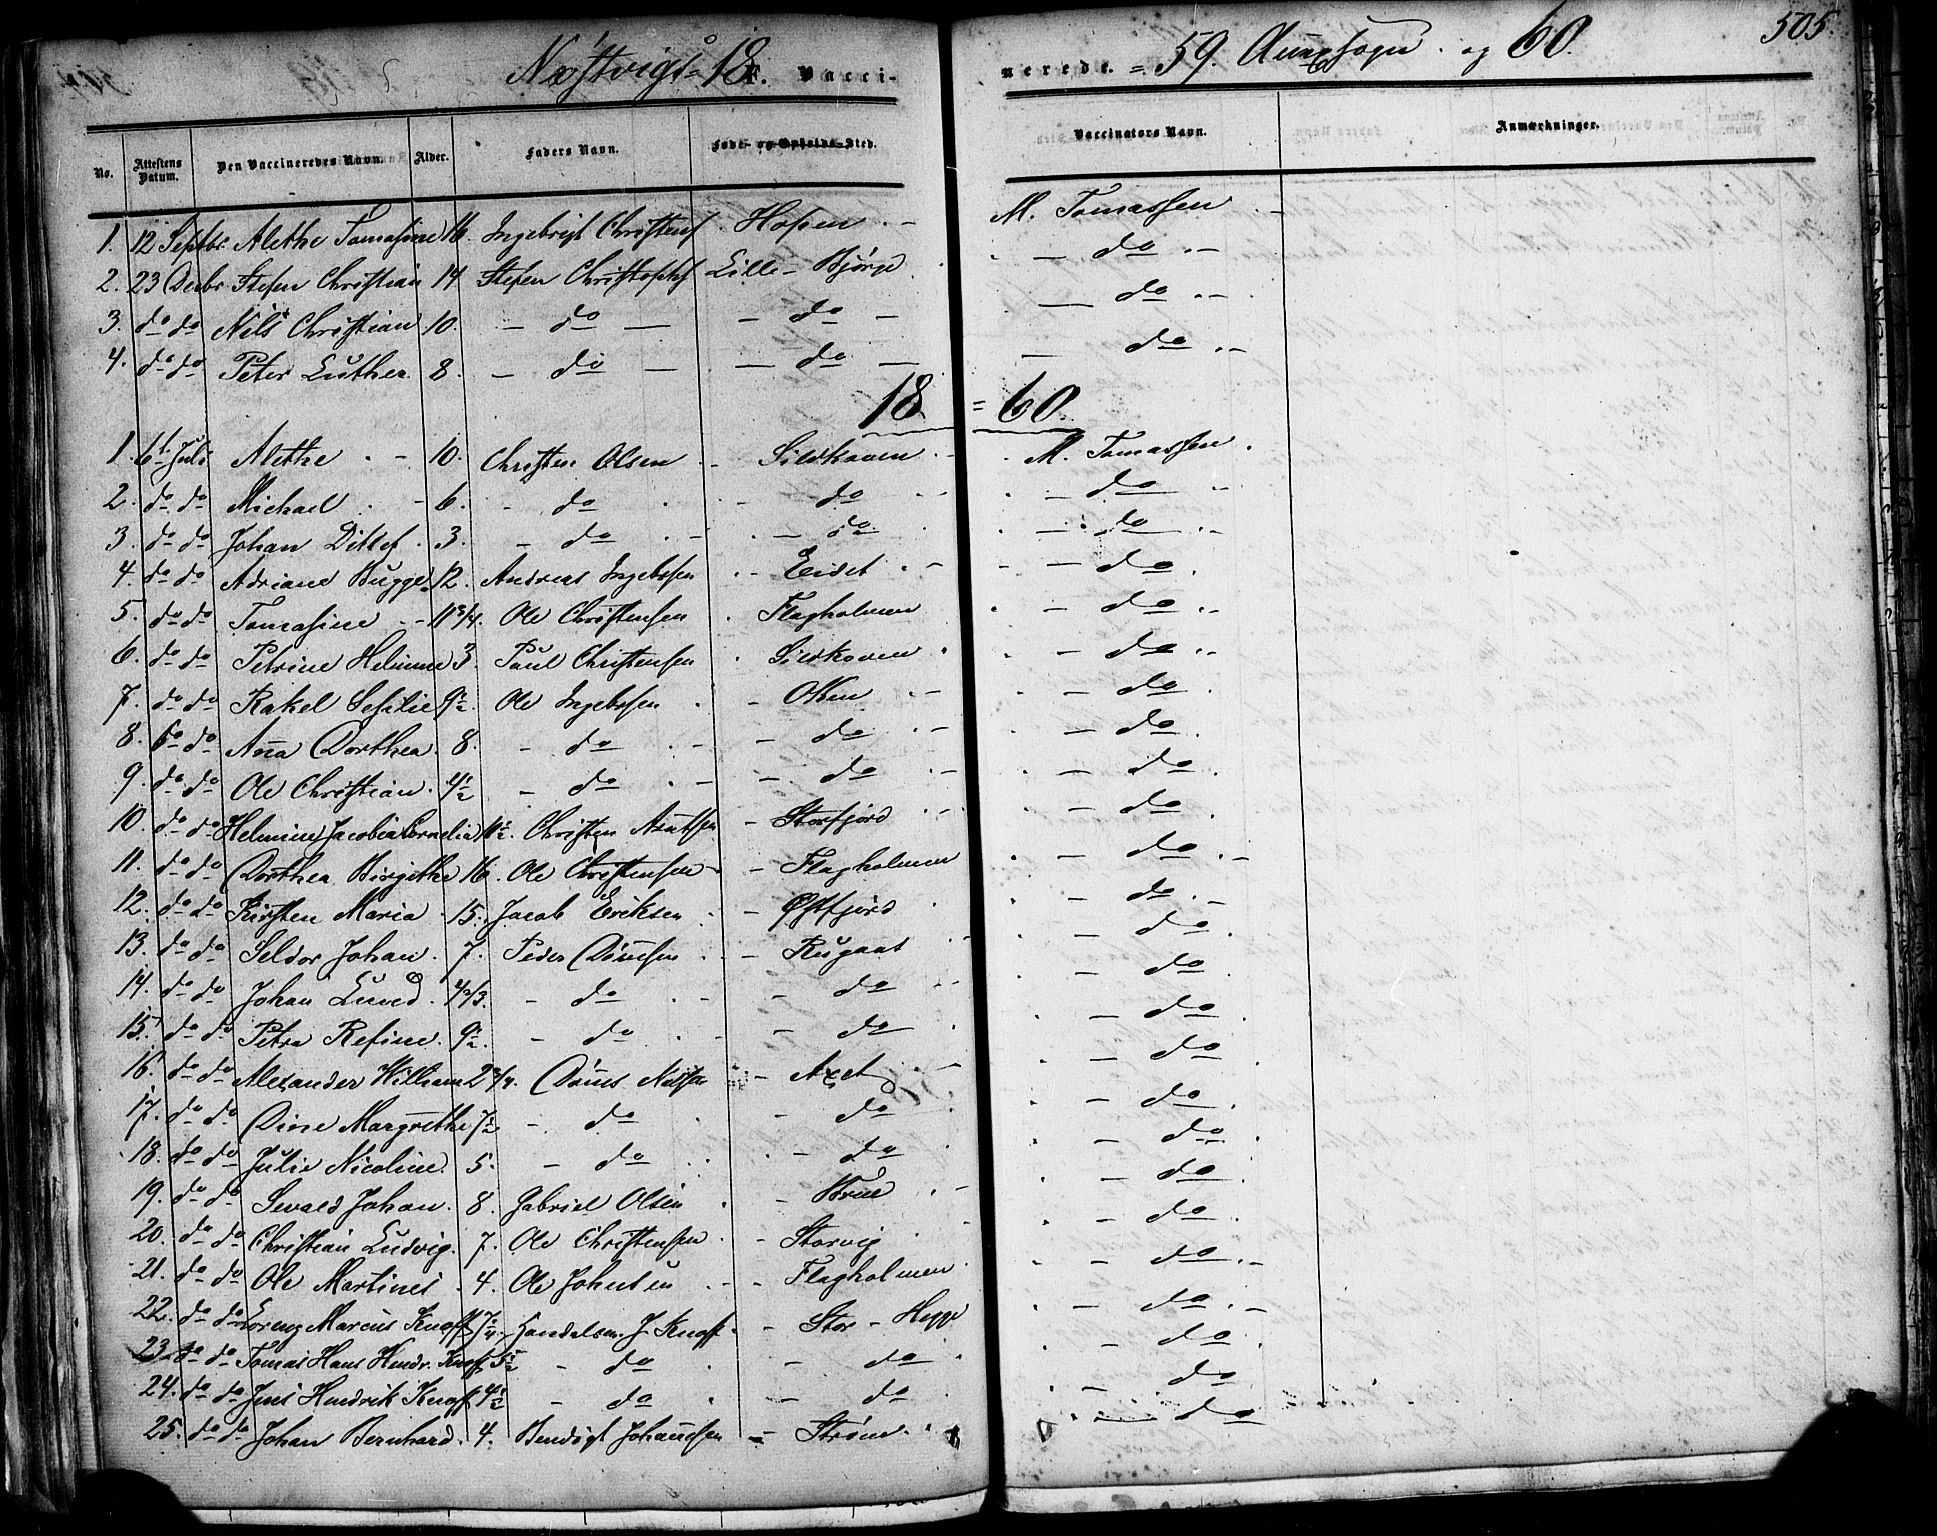 505.
Næstvigs 18 F. Vacci- nerede. = 59. Annexsogn. og 60.
No. Attestens Datum. Den Vaccineredes Navn. Alder. Faders Navn. Føde- og Opholds-Sted. Vaccinators Navn. Anmærkninger.
1. 12 Septbr. Alethe Tomasine 16. Ingebrigt Christens. Hopen - M. Tomassen -
2. 23 Decbr Stefen Christian 14 Stefen Christophs Lille-Bjørge - do -
3. do do Nils Christian 10. - do - - do - - do -
4. do do Peter Luther 8. - do - - do - - do -
18 = 60.
1. 6t Juli Alethe - 10. Christen Olsen - Sildhaven - M. Tomassen
2. do do Michael - 6. - do - do - do -
3. do do Johan Ditlef. 3. - do - - do - do -
4. do do Adriane Bugge 12. Andreas Ingebsen - Eidet - - do.
5. do do Tomasine - 11 3/4. Ole Christensen Flagholmen - do -
6. do do Petrine Helmine 3. Paul Christensen Sildhaven - do -
7. do do Rakel Sesilie 9 1/2 Ole Ingebsen - Olken - - do.
8. do do Anna Dorthea. 8. - do - - do - - do.
9. do do Ole Christian. 4 1/2 - do - - do - - do.
10. do do Helmine Jacobia Cornelia 11 1/2. Christen Arntsen - Storfjord - do.
11. do do Dorthea Birgithe 16. Ole Christensen - Flagholmen - do -
12. do do Kirsten Maria 15. Jacob Eriksen - Østfjord - do -
13. do do Seldor Johan. 7. Peder Dønnesen - Rugaas - do.
14. do do Johan Lued. 4 2/3. - do - - do - - do.
15. do do Petra Refine. 9 1/2. - do - - do - do.
16. do do Alexander William 2 3/4. Dønnes Nilsen - Axet - - do.
17. do do Dine Margrethe 7 1/2 - do - do - do.
18. do do Julie Nicoline. 5. - do - do - do.
19. do do Sevald Johan. 8 Gabriel Olsen - Brue - - do.
20. do do Christian Ludvig. 7. Ole Christensen - Storvig - do.
21. do do Ole Martines. 4. Ole Johnsen - Flagholmen - do -
22. do do Lorenz Marcus Knoff Handelsm. J. Knoff. - Stor-Hegge - do -
23. do do Tomas Hans Hendr. Knoff 5 1/2 - do - do - do.
24. do do Jens Hendrik Knoff 4 1/2 - do - do - do
25. do do Johan Bernhard. 4. Bendigt Johansen - Strøm. - do